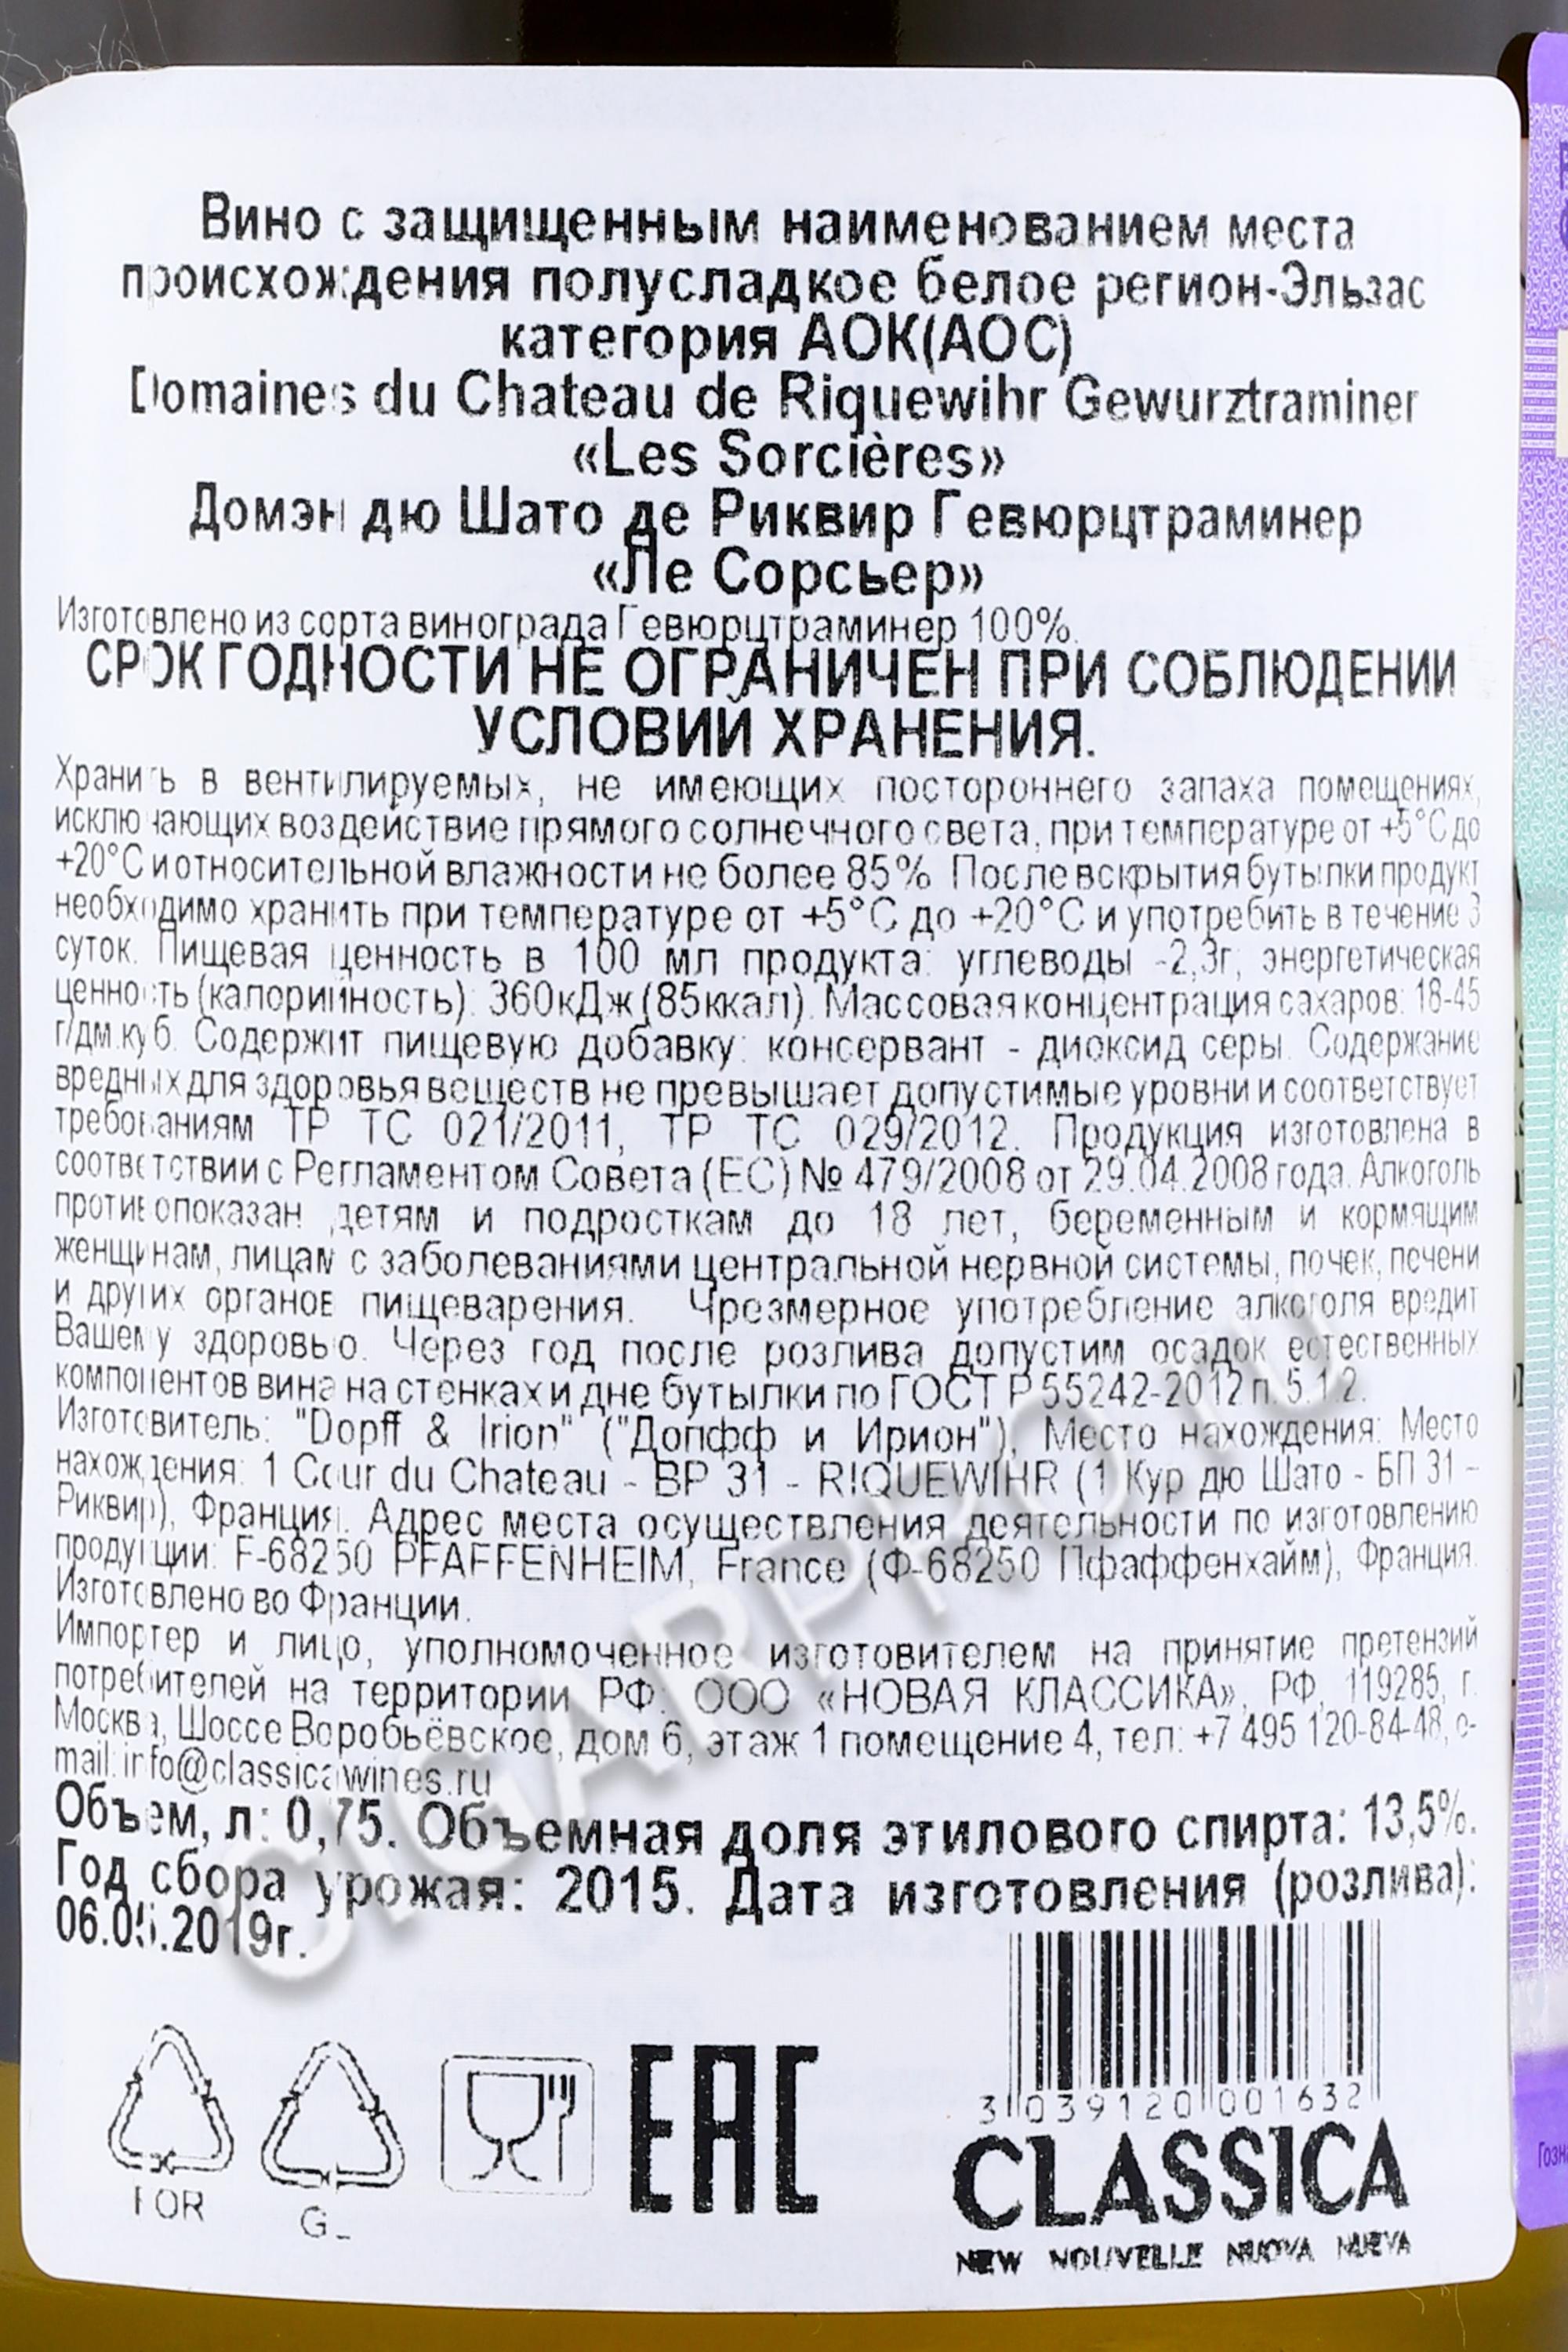 Вино с защищенным наименованием места
происхождения полусладкое белое регион-Эльзас
категория АОК(АОС)
Domaines du Chateau de Riquewihr Gewurztraminer
«Les Sorcières»
Домэн дю Шато де Риквир Гевюрцтраминер
«Ле Сорсьер»
Изготовлено из сорта винограда Гевюрцтраминер 100%.
СРОК ГОДНОСТИ НЕ ОГРАНИЧЕН ПРИ СОБЛЮДЕНИИ
УСЛОВИЙ ХРАНЕНИЯ.
Хранить в вентилируемых, не имеющих постороннего запаха помещениях,
исключающих воздействие прямого солнечного света, при температуре от +5°С до
+20°С и относительной влажности не более 85%. После вскрытия бутылки продукт
необходимо хранить при температуре от +5°С до +20°С и употребить в течение 3
суток. Пищевая ценность в 100 мл продукта: углеводы -2,3г; энергетическая
ценность (калорийность): 360кДж (85ккал). Массовая концентрация сахаров: 18-45
г/дм.куб. Содержит пищевую добавку: консервант - диоксид серы. Содержание
вредных для здоровья веществ не превышает допустимые уровни и соответствует
требованиям ТР ТС 021/2011, ТР ТС 029/2012. Продукция изготовлена в
соответствии с Регламентом Совета (ЕС) № 479/2008 от 29.04.2008 года. Алкоголь
противопоказан детям и подросткам до 18 лет, беременным и кормящим
женщинам, лицам с заболеваниями центральной нервной системы, почек, печени
и других органов пищеварения. Чрезмерное употребление алкоголя вредит
Вашему здоровью. Через год после розлива допустим осадок естественных
компонентов вина на стенках и дне бутылки по ГОСТ Р 55242-2012 п. 5.1.2.
Изготовитель: "Dopff & Irion" ("Допфф и Ирион"), Место нахождения: Место
нахождения: 1 Cour du Chateau - BP 31 - RIQUEWIHR (1 Кур дю Шато - БП 31 -
Риквир), Франция. Адрес места осуществления деятельности по изготовлению
продукции: F-68250 PFAFFENHEIM, France (Ф-68250 Пфаффенхайм), Франция.
Изготовлено во Франции.
Импортер и лицо, уполномоченное изготовителем на принятие претензий
потребителей на территории РФ: ООО «НОВАЯ КЛАССИКА», РФ, 119285, г.
Москва, Шоссе Воробьёвское, дом 6, этаж 1 помещение 4, тел: +7 495 120-84-48, e-
mail: info@classicawines.ru
Объем, л: 0,75. Объемная доля этилового спирта: 13,5%.
Год сбора урожая: 2015. Дата изготовления (розлива):
06.05.2019г.
3 039120 001632
FOR
GL
EAC
CLASSICA
NEW NOUVELLE NUOVA NUEVA
CIGARPRO.ru